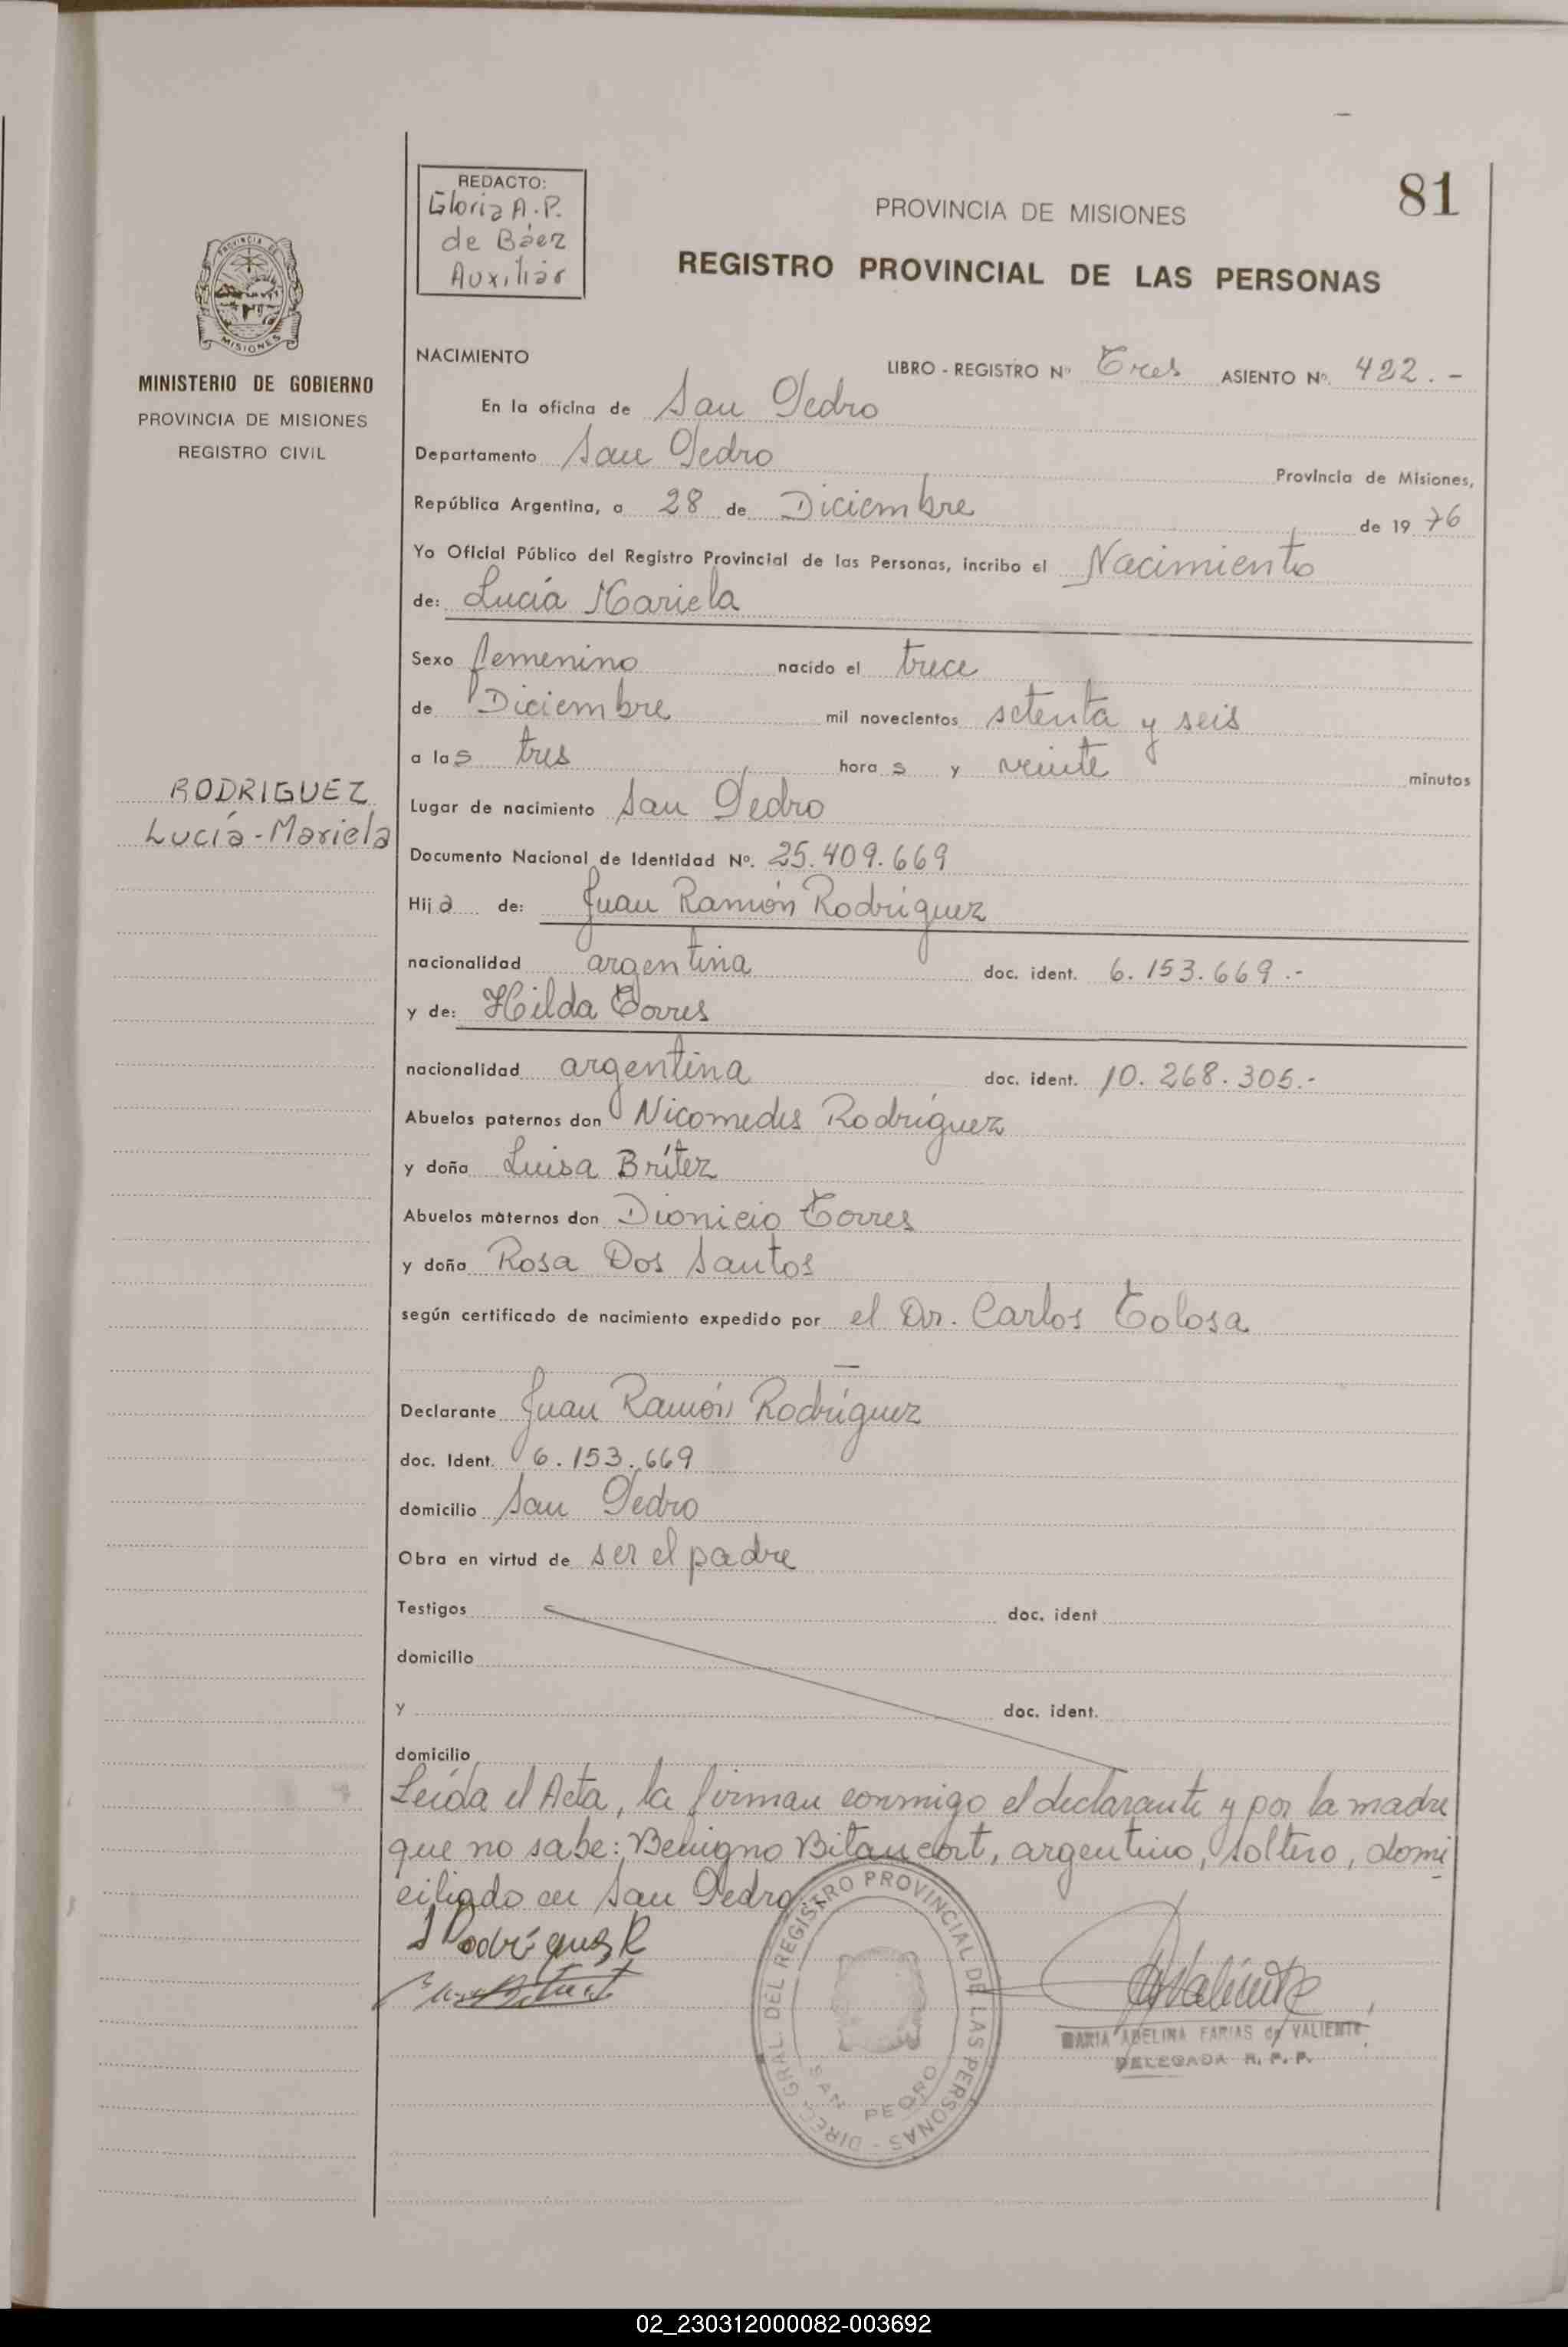 81
REDACTO:
Gloria A.P.
de Báez
Auxiliar
PROVINCIA DE MISIONES
REGISTRO PROVINCIAL DE LAS PERSONAS
PROVINCIA DE
MISIONES
MINISTERIO DE GOBIERNO
PROVINCIA DE MISIONES
REGISTRO CIVIL
NACIMIENTO
LIBRO - REGISTRO Nº Tres ASIENTO Nº. 422.-
En la oficina de San Pedro
Departamento San Pedro Provincia de Misiones,
República Argentina, a 28 de Diciembre de 1976
Yo Oficial Público del Registro Provincial de las Personas, incribo el Nacimiento
de: Lucía Mariela
Sexo femenino nacido el trece
de Diciembre mil novecientos setenta y seis
a las tres horas y veinte minutos
RODRIGUEZ
Lucía-Mariela
Lugar de nacimiento San Pedro
Documento Nacional de Identidad Nº. 25.409.669
Hija de: Juan Ramón Rodríguez
nacionalidad argentina doc. ident. 6.153.669.-
y de: Hilda Torres
nacionalidad argentina doc. ident. 10.268.305.-
Abuelos paternos don Nicomedes Rodríguez
y doña Luisa Brítez
Abuelos maternos don Dionicio Torres
y doña Rosa Dos Santos
según certificado de nacimiento expedido por el Dr. Carlos Tolosa
—
Declarante Juan Ramón Rodríguez
doc. Ident. 6.153.669
domicilio San Pedro
Obra en virtud de ser el padre
Testigos doc. ident
domicilio
y doc. ident.
domicilio
Leída el Acta, la firman conmigo el declarante y por la madre
que no sabe: Benigno Bitancort, argentino, soltero, domi
ciliado en San Pedro.
J Rodríguez R
DIREC. GRAL. DEL REGISTRO PROVINCIAL DE LAS PERSONAS -
SAN PEDRO
MARIA ADELINA FARIAS de VALIENTE
DELEGADA R. P. P.
02_230312000082-003692